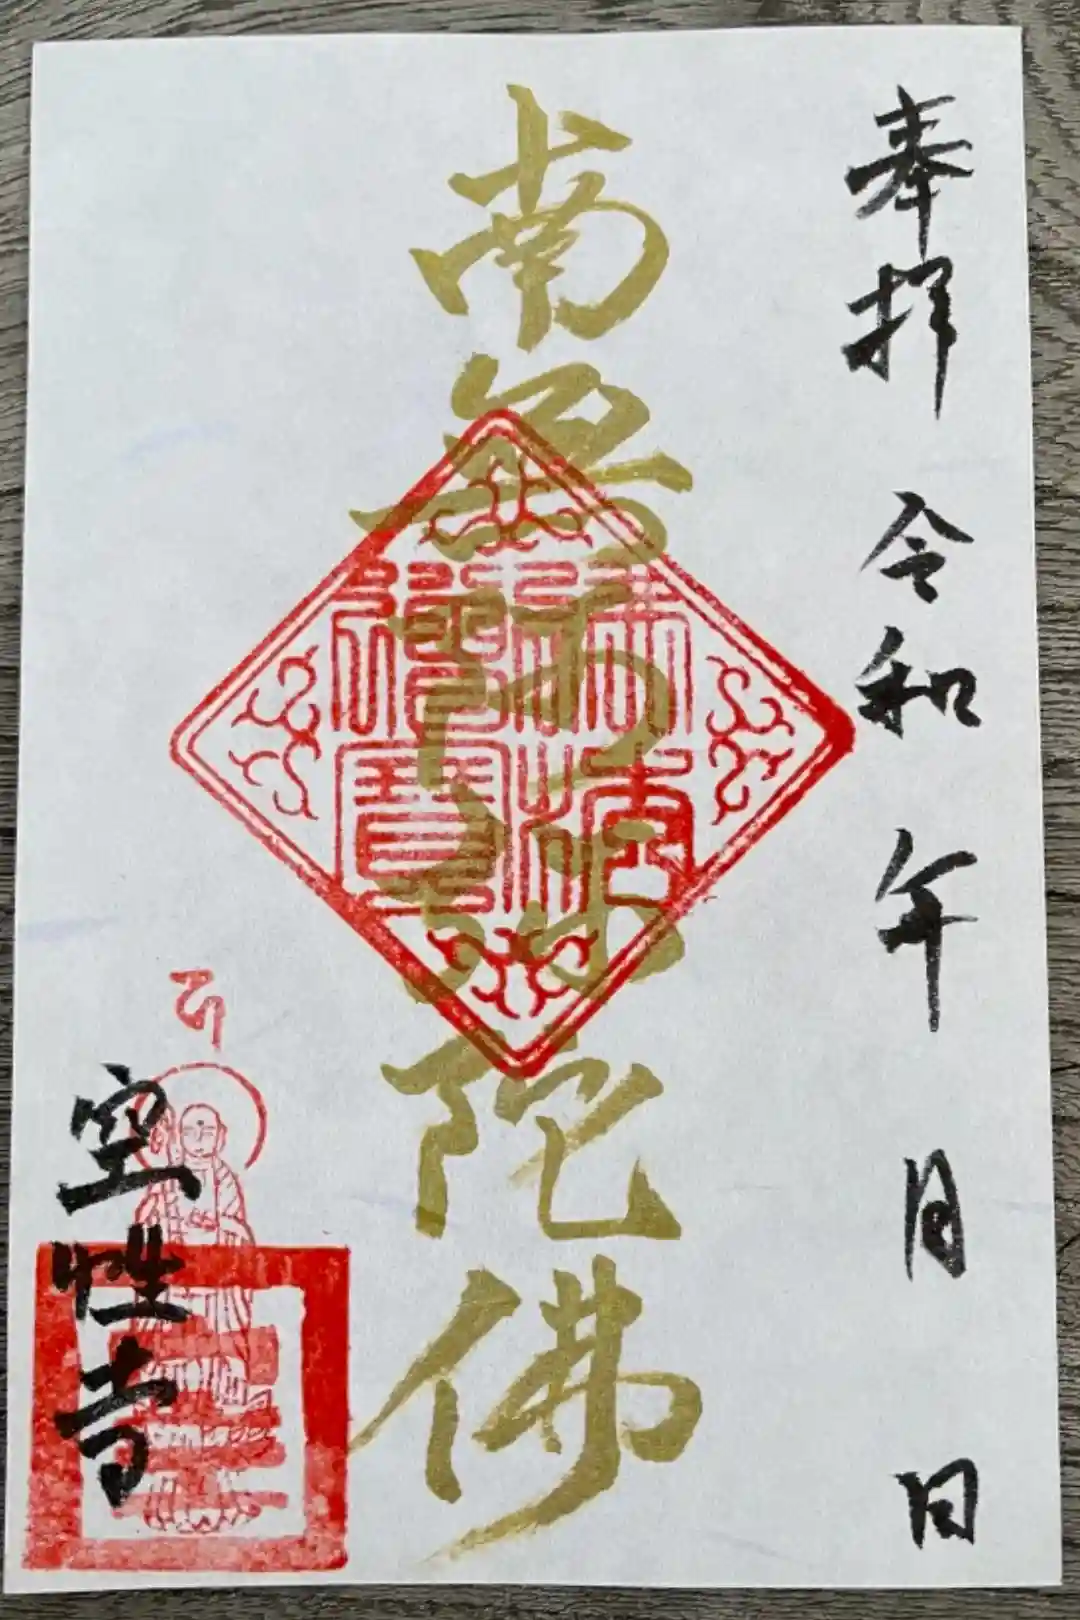 奉拝 令和 年 月 日
南無阿弥陀佛
空性寺